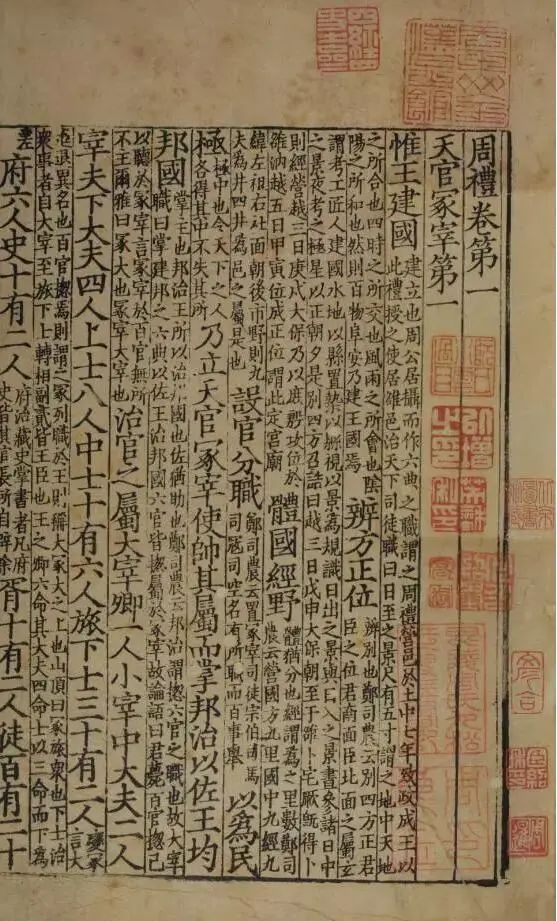 周禮卷第一
天官冢宰第一
惟王建國建立也周公居攝而作六典之職謂之周禮營邑於土中七年致政成王以此禮授之使居雒邑治天下司徒職曰日至之景尺有五寸謂之地中天地
之所合也四時之所交也風雨之所會也陰陽之所和也然則百物阜安乃建王國焉辨方正位辨別也鄭司農云別四方正君臣之位君南面臣北面之屬玄
謂考工匠人建國水地以縣置槷以縣視以景為規識日出之景與日入之景晝參諸日中之景夜考之極星以正朝夕是別四方召誥曰越三日戊申大保朝至于雒卜宅厥既得卜
則經營越三日庚戌大保乃以庶殷攻位於雒汭越五日甲寅位成正位謂此定宮廟體國經野體猶分也經謂為之里數鄭司農云營國方九里國中九經九
緯左祖右社面朝後市野則九夫為井四井為邑之屬是也設官分職鄭司農云置冢宰司徒宗伯司馬司寇司空各有所職而百事舉以為民
極極中也令天下之人各得其中不失其所乃立天官冢宰使帥其屬而掌邦治以佐王均
邦國掌主也邦治王所以治邦國也佐猶助也鄭司農云邦治謂揔六官之職也故大宰職曰掌建邦之六典以佐王治邦國六官皆揔屬於冢宰故論語曰君薨百官揔己
以聽於冢宰言冢宰於百官無所不主爾雅曰冢大也冢宰大宰也治官之屬大宰卿一人小宰中大夫二人
宰夫下大夫四人上士八人中士十有六人旅下士三十有二人變冢言大
進退異名也百官揔焉則謂之冢列職於王則稱大冢大之上也山頂曰冢旅衆也下士治衆事者自大宰至旅下士轉相副貳皆王臣也王之卿六命其大夫四命士以三命而下為
差府六人史十有二人府治藏史掌書者凡府史皆其官長所自辟除胥十有二人徒百有二十